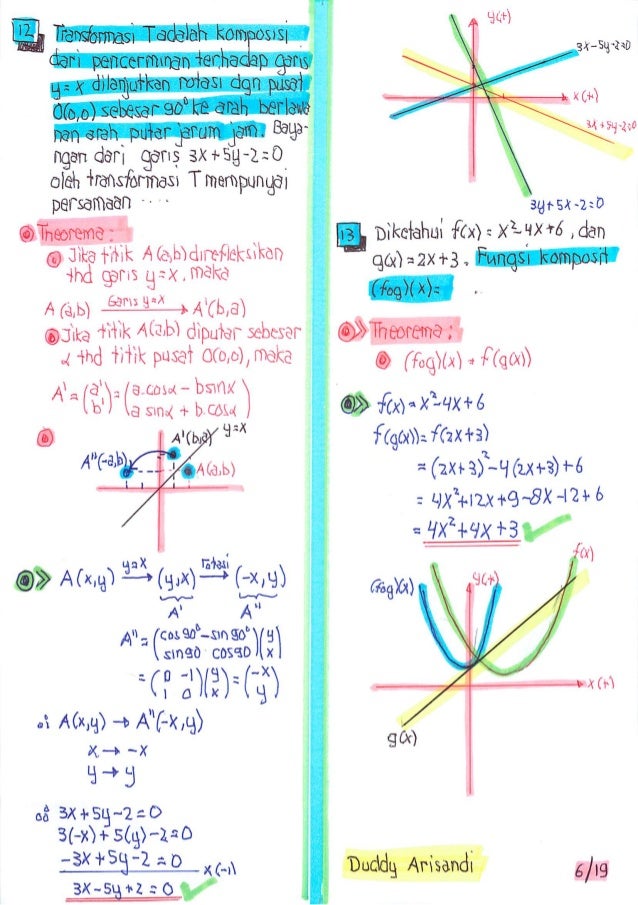 12 Transformasi T adalah komposisi
dari pencerminan terhadap garis
y = x dilanjutkan rotasi dgn pusat
O(0,0) sebesar 90° ke arah berlawa
nan arah putar jarum jam. Baya-
ngan dari garis 3x + 5y - 2 = 0
oleh transformasi T mempunyai
persamaan ....
Theorema :
Jika titik A(a,b) direfleksikan
thd garis y = x, maka
A (a,b) Garis y=x → A'(b,a)
Jika titik A(a,b) diputar sebesar
α thd titik pusat O(0,0), maka
A' = (a' b') = (a.cosα - bsinα a sinα + b.cosα)
A'(b,a) y=x
A"(-a,b)
A(a,b)
A(x,y) y=x → (y,x) rotasi → (-x,y)
A' A"
A" = (cos 90° - sin 90° sin90 cos90)(y x)
= (0 -1 1 0)(y x) = (-x y)
∴ A(x,y) → A"(-x,y)
x → -x
y → y
3x + 5y - 2 = 0
3(-x) + 5(y) - 2 = 0
-3x + 5y - 2 = 0 x (-1)
3x - 5y + 2 = 0
y(+)
3x - 5y + 2 = 0
x (+)
3x + 5y - 2 = 0
3y + 5x - 2 = 0
13 Diketahui f(x) = x² - 4x + 6, dan
g(x) = 2x + 3. Fungsi komposit
(fog)(x) = .
Theorema :
(fog)(x) = f(g(x))
f(x) = x² - 4x + 6
f(g(x)) = f(2x+3)
= (2x+3)² - 4(2x+3) + 6
= 4x² + 12x + 9 - 8x - 12 + 6
= 4x² + 4x + 3
f(x)
(fog)(x)
y(+)
x (+)
g(x)
Duddy Arisandi
6/19